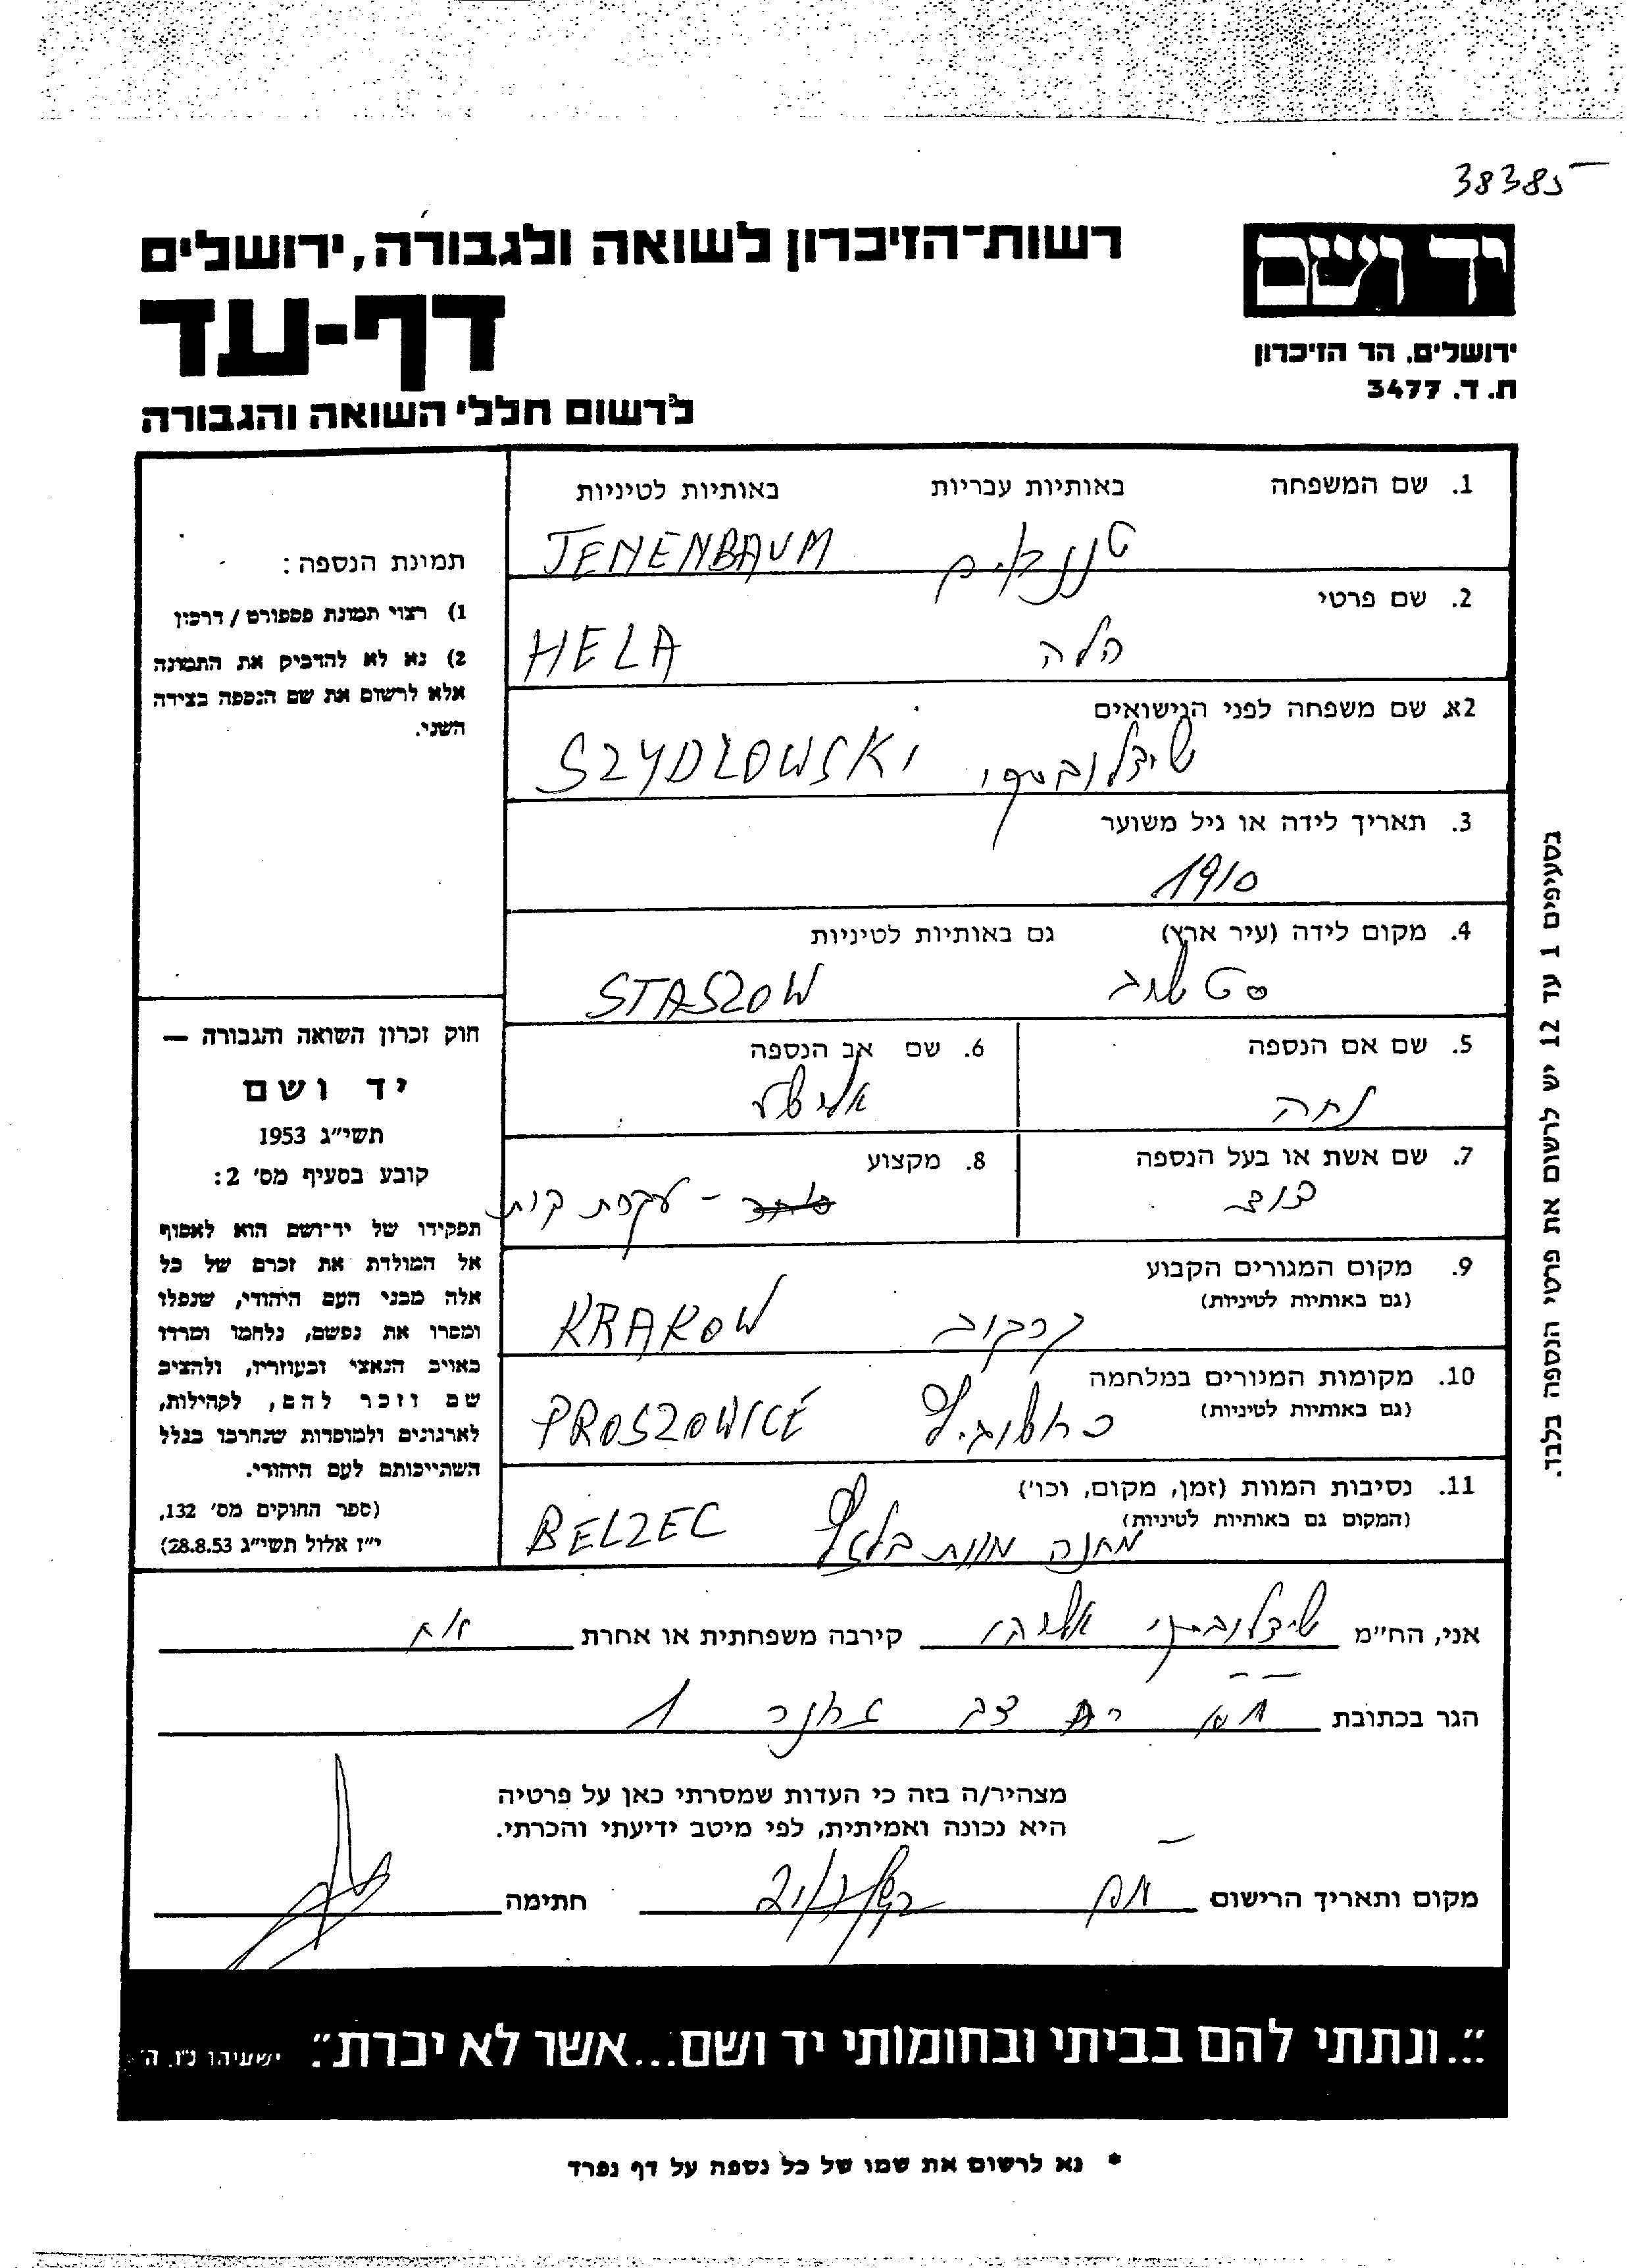 38385
רשות-הזיכרון לשואה ולגבורה, ירושלים
יד ושם
דף-עד
ירושלים, הר הזיכרון
ת. ד. 3477
לרשום חללי השואה והגבורה
1. שם המשפחה באותיות עבריות באותיות לטיניות
טננבאום TENENBAUM
2. שם פרטי
הלה HELA
2א. שם משפחה לפני הנישואים
שידלובסקי SZYDLOWSKI
3. תאריך לידה או גיל משוער
1910
4. מקום לידה (עיר ארץ) גם באותיות לטיניות
סטשוב STASZOW
5. שם אם הנספה
6. שם אב הנספה
7. שם אשת או בעל הנספה
8. מקצוע
עקרת בית
9. מקום המגורים הקבוע
(גם באותיות לטיניות)
קרקוב KRAKOW
10. מקומות המגורים במלחמה
(גם באותיות לטיניות)
PROSZOWICE
11. נסיבות המוות (זמן, מקום, וכו')
(המקום גם באותיות לטיניות)
מחנה מוות בלזץ BELZEC
תמונת הנספה:
1) רצוי תמונת פספורט / דרכון
2) נא לא להדביק את התמונה
אלא לרשום את שם הנספה בצידה
השני.
חוק זכרון השואה והגבורה —
יד ושם
תשי״ג 1953
קובע בסעיף מס' 2:
תפקידו של יד־ושם הוא לאסוף
אל המולדת את זכרם של כל
אלה מבני העם היהודי, שנפלו
ומסרו את נפשם, נלחמו ומרדו
באויב הנאצי ובעוזריו, ולהציב
שם וזכר להם, לקהילות,
לארגונים ולמוסדות שנחרבו בגלל
השתייכותם לעם היהודי.
(ספר החוקים מס' 132,
י״ז אלול תשי״ג 28.8.53)
בסעיפים 1 עד 12 יש לרשום את פרטי הנספה בלבד.
אני, הח״מ שידלובסקי אליהו קירבה משפחתית או אחרת אח
הגר בכתובת 1
מצהיר/ה בזה כי העדות שמסרתי כאן על פרטיה
היא נכונה ואמיתית, לפי מיטב ידיעתי והכרתי.
מקום ותאריך הרישום חתימה
"...ונתתי להם בביתי ובחומותי יד ושם...אשר לא יכרת". ישעיהו נ״ו, ה'
* נא לרשום את שמו של כל נספה על דף נפרד